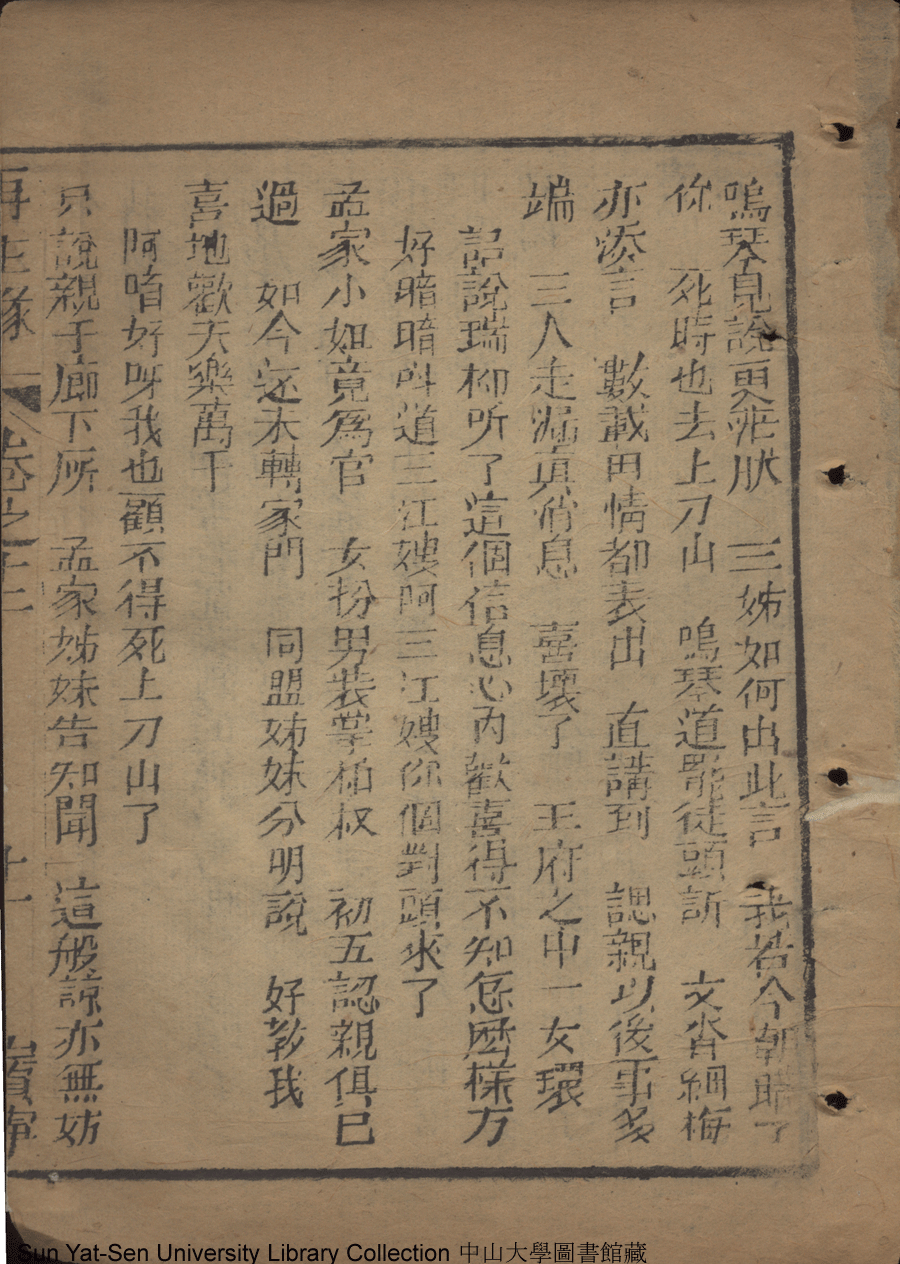 鳴琴見說更茫肰　三姊如何出此言　我若今朝瞎了
你　死時也去上刀山　鳴琴道罷從頭訴　文杏細梅
亦添言　數載田情都表出　直講到　認親以後事多
端　三人走漏真消息　喜壞了　王府之中一女環
記說瑞柳听了這個信息心內歡喜得不知怎麽樣方
好暗暗呌道三江嫂阿三江嫂你個對頭來了
孟家小姐竟爲官　女扮男裝掌栢权　初五認親俱已
過　如今还未轉家門　同盟姊妹分明說　好教我
喜地歡天樂萬千
阿唷好呀我也顧不得死上刀山了
只說親于廊下所　孟家姊妹告知聞　這般諒亦無妨
再生緣　卷之十二　十一
Sun Yat-Sen University Library Collection 中山大學圖書館藏